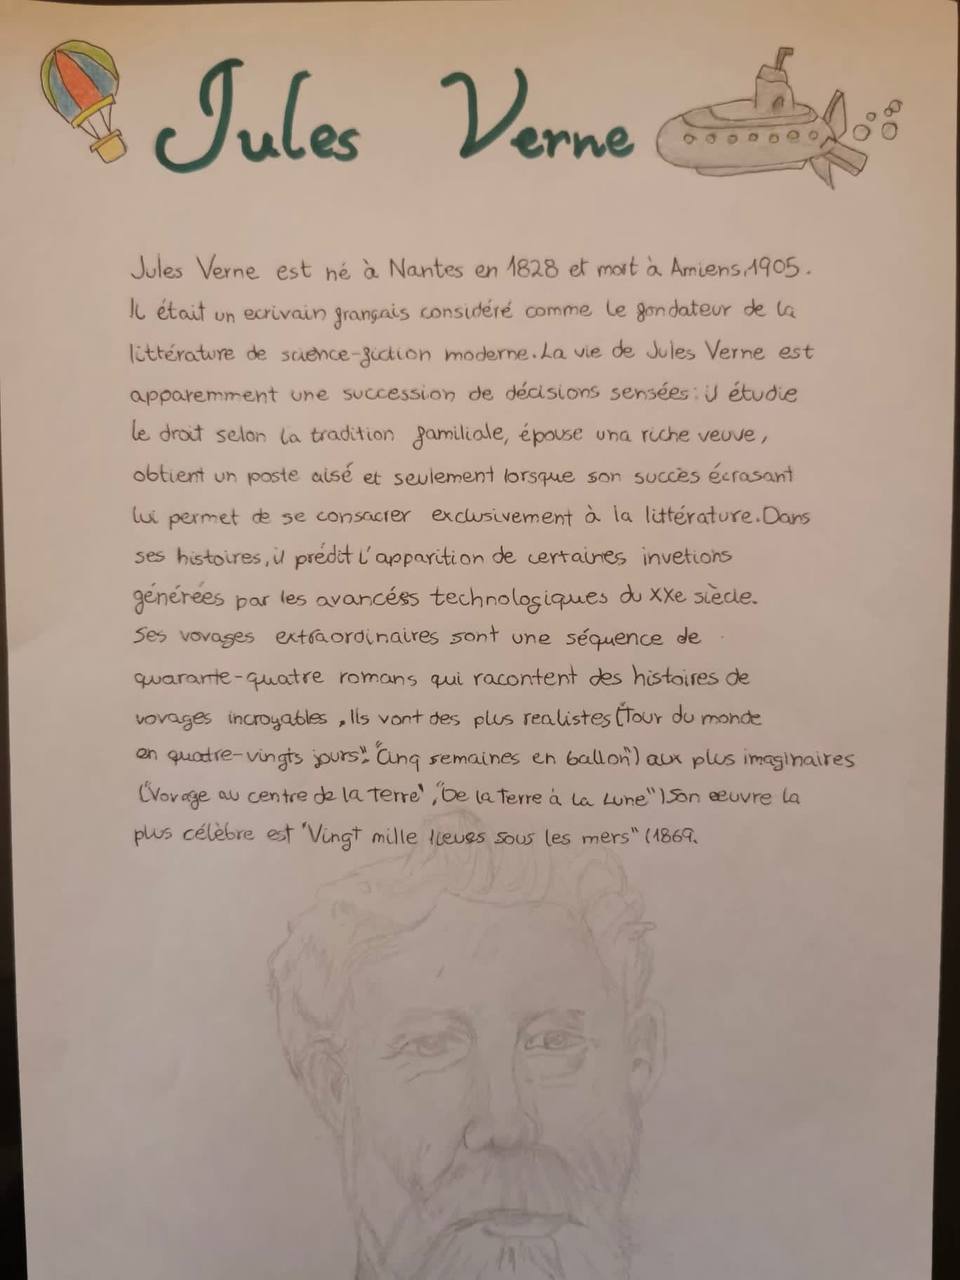 Jules Verne
Jules Verne est né à Nantes en 1828 et mort à Amiens, 1905.
Il était un ecrivain français considéré comme le fondateur de la
littérature de science-fiction moderne. La vie de Jules Verne est
apparemment une succession de décisions sensées: il étudie
le droit selon la tradition familiale, épouse una riche veuve,
obtient un poste aisé et seulement lorsque son succès écrasant
lui permet de se consacrer exclusivement à la littérature. Dans
ses histoires, il prédit l'apparition de certaines invetions
générées par les avancéss technologiques du XXe siècle.
Ses vovages extraordinaires sont une séquence de
quarante-quatre romans qui racontent des histoires de
vovages incroyables, Ils vont des plus realistes ("Tour du monde
en quatre-vingts jours". "Cinq semaines en ballon") aux plus imaginaires
("Vovage au centre de la terre", "De la terre à la Lune") Son œeuvre la
plus célèbre est "Vingt mille lieues sous les mers" (1869.